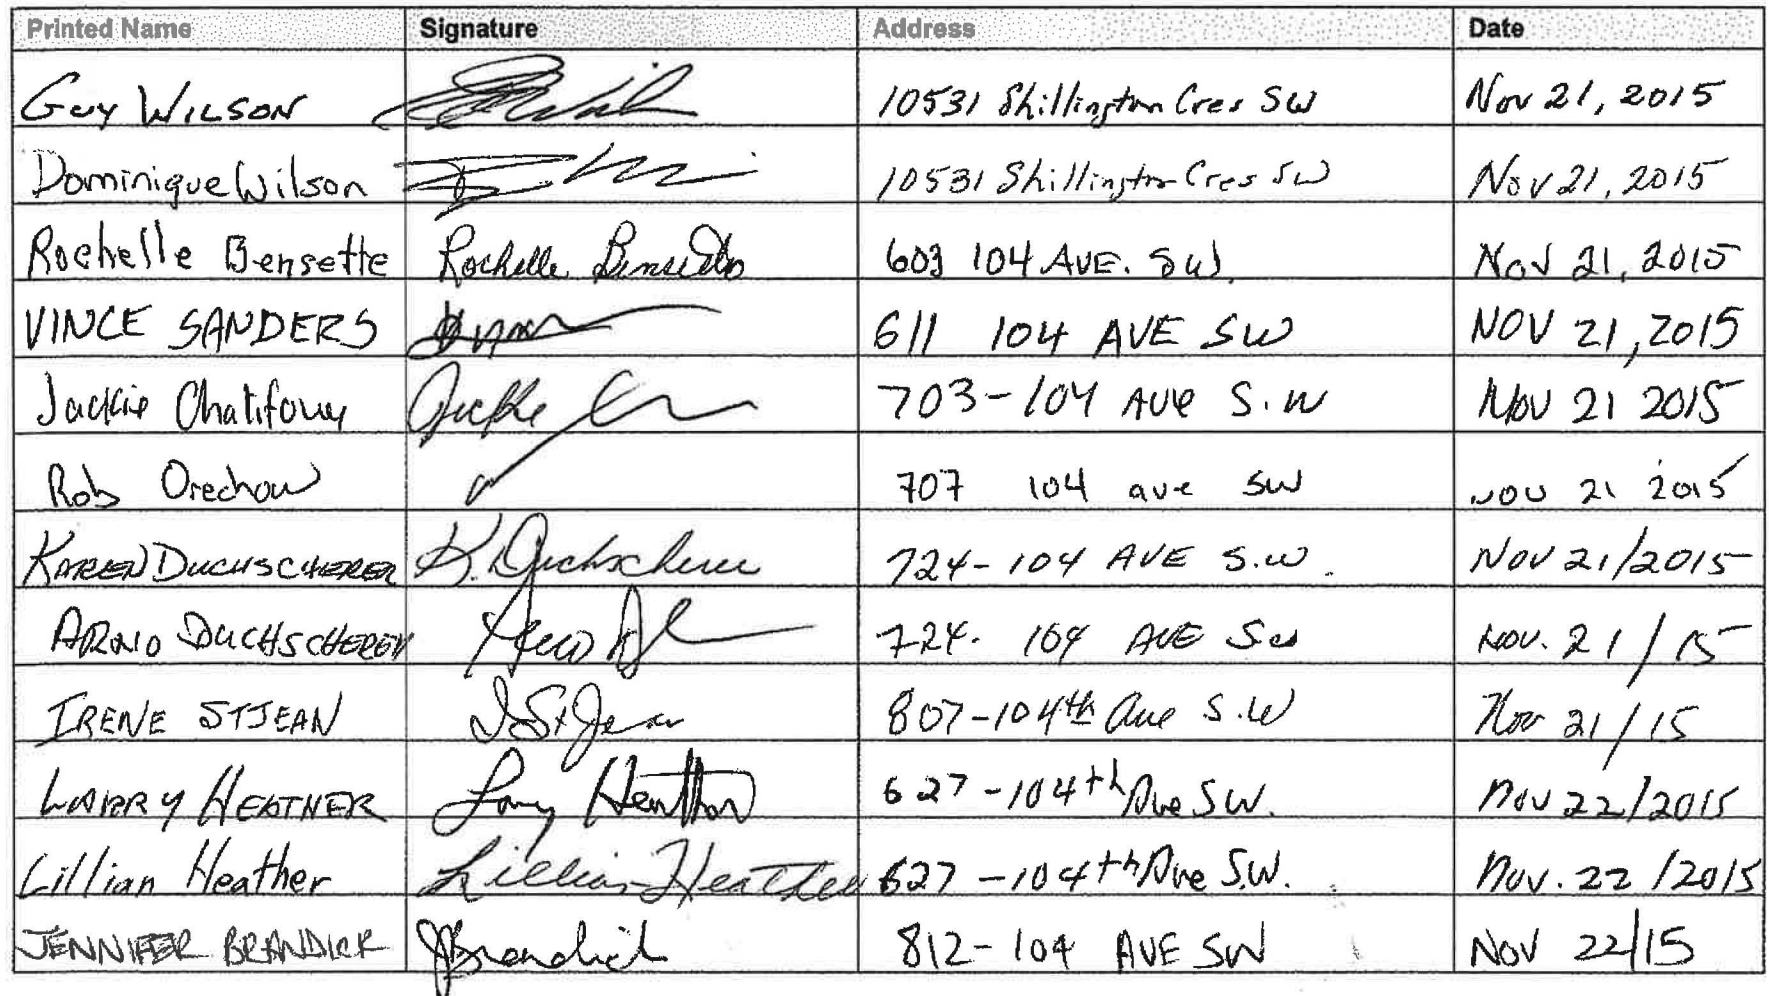 Printed Name Signature Address Date
Guy WILSON 10531 Shillington Cres SW Nov 21, 2015
Dominique Wilson 10531 Shillington Cres SW Nov 21, 2015
Rochelle Bensette Rochelle Bensette 603 104 AVE. SW. Nov 21, 2015
VINCE SANDERS 611 104 AVE SW NOV 21, 2015
Jackie Chatifour Jackie 703-104 AVE S.W Nov 21 2015
Rob Orechow 707 104 ave SW Nov 21 2015
KAREN DUCHSCHERER K. Duchscherer 724-104 AVE S.W. Nov 21/2015
ARNO DUCHSCHERER 724. 104 AVE SW Nov. 21/15
IRENE ST JEAN I St Jean 807-104th Ave S.W Nov 21/15
LARRY HEATHER Larry Heather 627-104th Ave SW. Nov 22/2015
Lillian Heather Lillian Heather 627-104th Ave S.W. Nov. 22/2015
JENNIFER BRANDICK JBrandick 812-104 AVE SW NOV 22/15